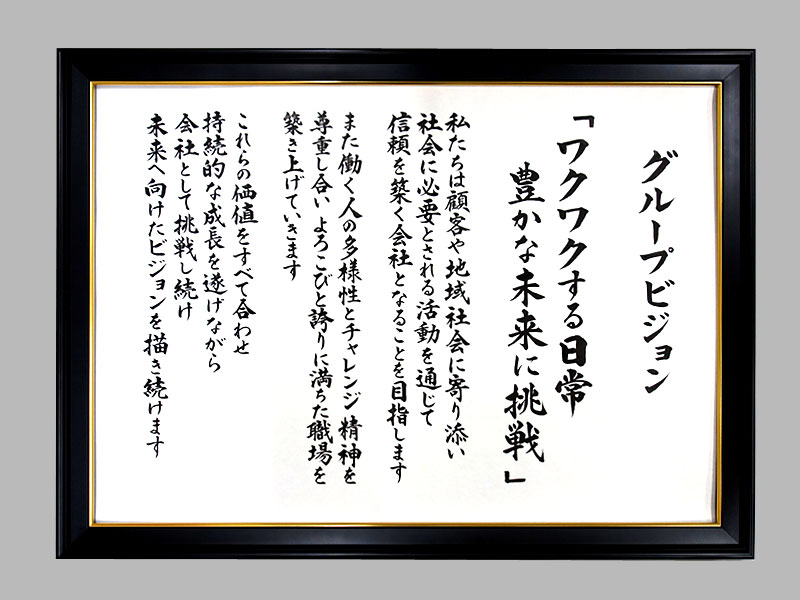 グループビジョン
「ワクワクする日常
豊かな未来に挑戦」
私たちは顧客や地域社会に寄り添い
社会に必要とされる活動を通じて
信頼を築く会社となることを目指します
また働く人の多様性とチャレンジ精神を
尊重し合い よろこびと誇りに満ちた職場を
築き上げていきます
これらの価値をすべて合わせ
持続的な成長を遂げながら
会社として挑戦し続け
未来へ向けたビジョンを描き続けます